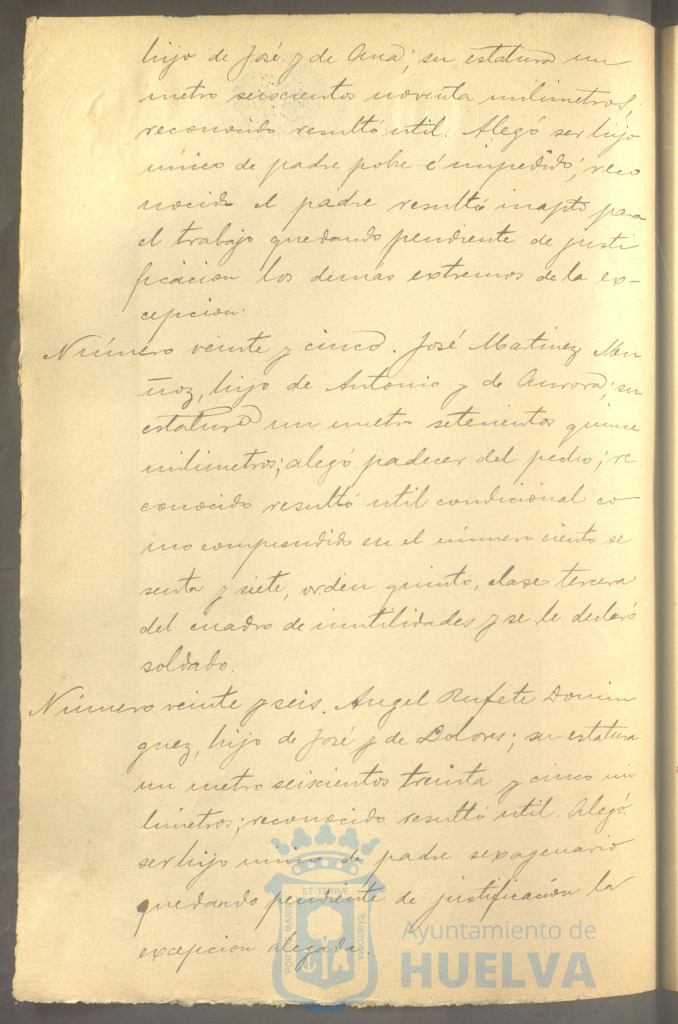 hijo de José y de Ana; su estatura un
metro seiscientos noventa milimetros,
reconocido resultó util. Alegó ser hijo
único de padre pobre é impedido; reco
nocido el padre resultó inapto para
el trabajo quedando pendiente de justi
ficacion los demás extremos de la ex-
cepcion.
Número veinte y cinco. José Matinez Mu
ñoz, hijo de Antonio y de Aurora; su
estatura un metro setecientos quince
milimetros; alegó padecer del pecho; re
conocido resultó util condicional co
mo comprendido en el número ciento se
senta y siete, orden quinto, clase tercera
del cuadro de inutilidades y se le declaró
soldado.
Número veinte y seis. Angel Rufete Domin
guez, hijo de José y de Dolores; su estatura
un metro seiscientos treinta y cinco mi
límetros; reconocido resultó util. Alegó
ser hijo unico de padre sexagenario
quedando pendiente de justificacion la
excepcion alegada.
PORTUS MARIS ET TERRÆ CUSTODIA
Ayuntamiento de
HUELVA